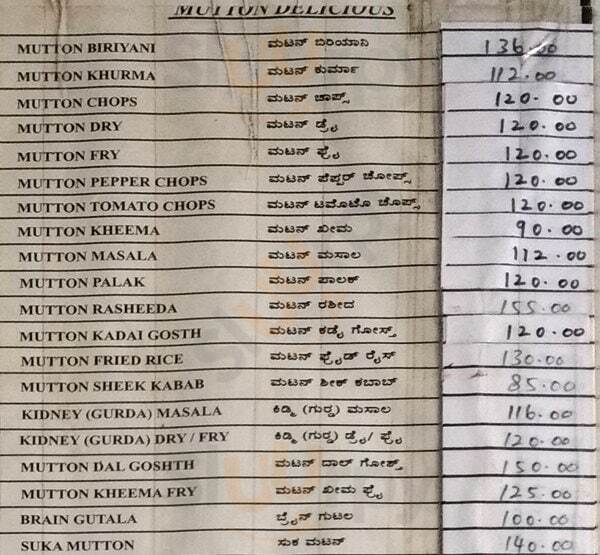 MUTTON DELICIOUS
MUTTON BIRIYANI ಮಟನ್ ಬಿರಿಯಾನಿ 136.00
MUTTON KHURMA ಮಟನ್ ಕುರ್ಮಾ 112.00
MUTTON CHOPS ಮಟನ್ ಚಾಪ್ಸ್ 120.00
MUTTON DRY ಮಟನ್ ಡ್ರೈ 120.00
MUTTON FRY ಮಟನ್ ಫ್ರೈ 120.00
MUTTON PEPPER CHOPS ಮಟನ್ ಪೆಪ್ಪರ್ ಚೋಪ್ಸ್ 120.00
MUTTON TOMATO CHOPS ಮಟನ್ ಟಮೊಟೊ ಚೊಪ್ಸ್ 120.00
MUTTON KHEEMA ಮಟನ್ ಖೀಮ 90.00
MUTTON MASALA ಮಟನ್ ಮಸಾಲ 112.00
MUTTON PALAK ಮಟನ್ ಪಾಲಕ್ 120.00
MUTTON RASHEEDA ಮಟನ್ ರಶೀದ 155.00
MUTTON KADAI GOSTH ಮಟನ್ ಕಡೈ ಗೋಸ್ತ್ 120.00
MUTTON FRIED RICE ಮಟನ್ ಫ್ರೈಡ್ ರೈಸ್ 130.00
MUTTON SHEEK KABAB ಮಟನ್ ಶೀಕ್ ಕಬಾಬ್ 85.00
KIDNEY (GURDA) MASALA ಕಿಡ್ನಿ (ಗುರ್ದ) ಮಸಾಲ 116.00
KIDNEY (GURDA) DRY / FRY ಕಿಡ್ನಿ (ಗುರ್ದ) ಡ್ರೈ/ ಫ್ರೈ 120.00
MUTTON DAL GOSHTH ಮಟನ್ ದಾಲ್ ಗೋಶ್ತ್ 150.00
MUTTON KHEEMA FRY ಮಟನ್ ಖೀಮ ಫ್ರೈ 125.00
BRAIN GUTALA ಬ್ರೈನ್ ಗುಟಲ 100.00
SUKA MUTTON ಸುಕ ಮಟನ್ 140.00